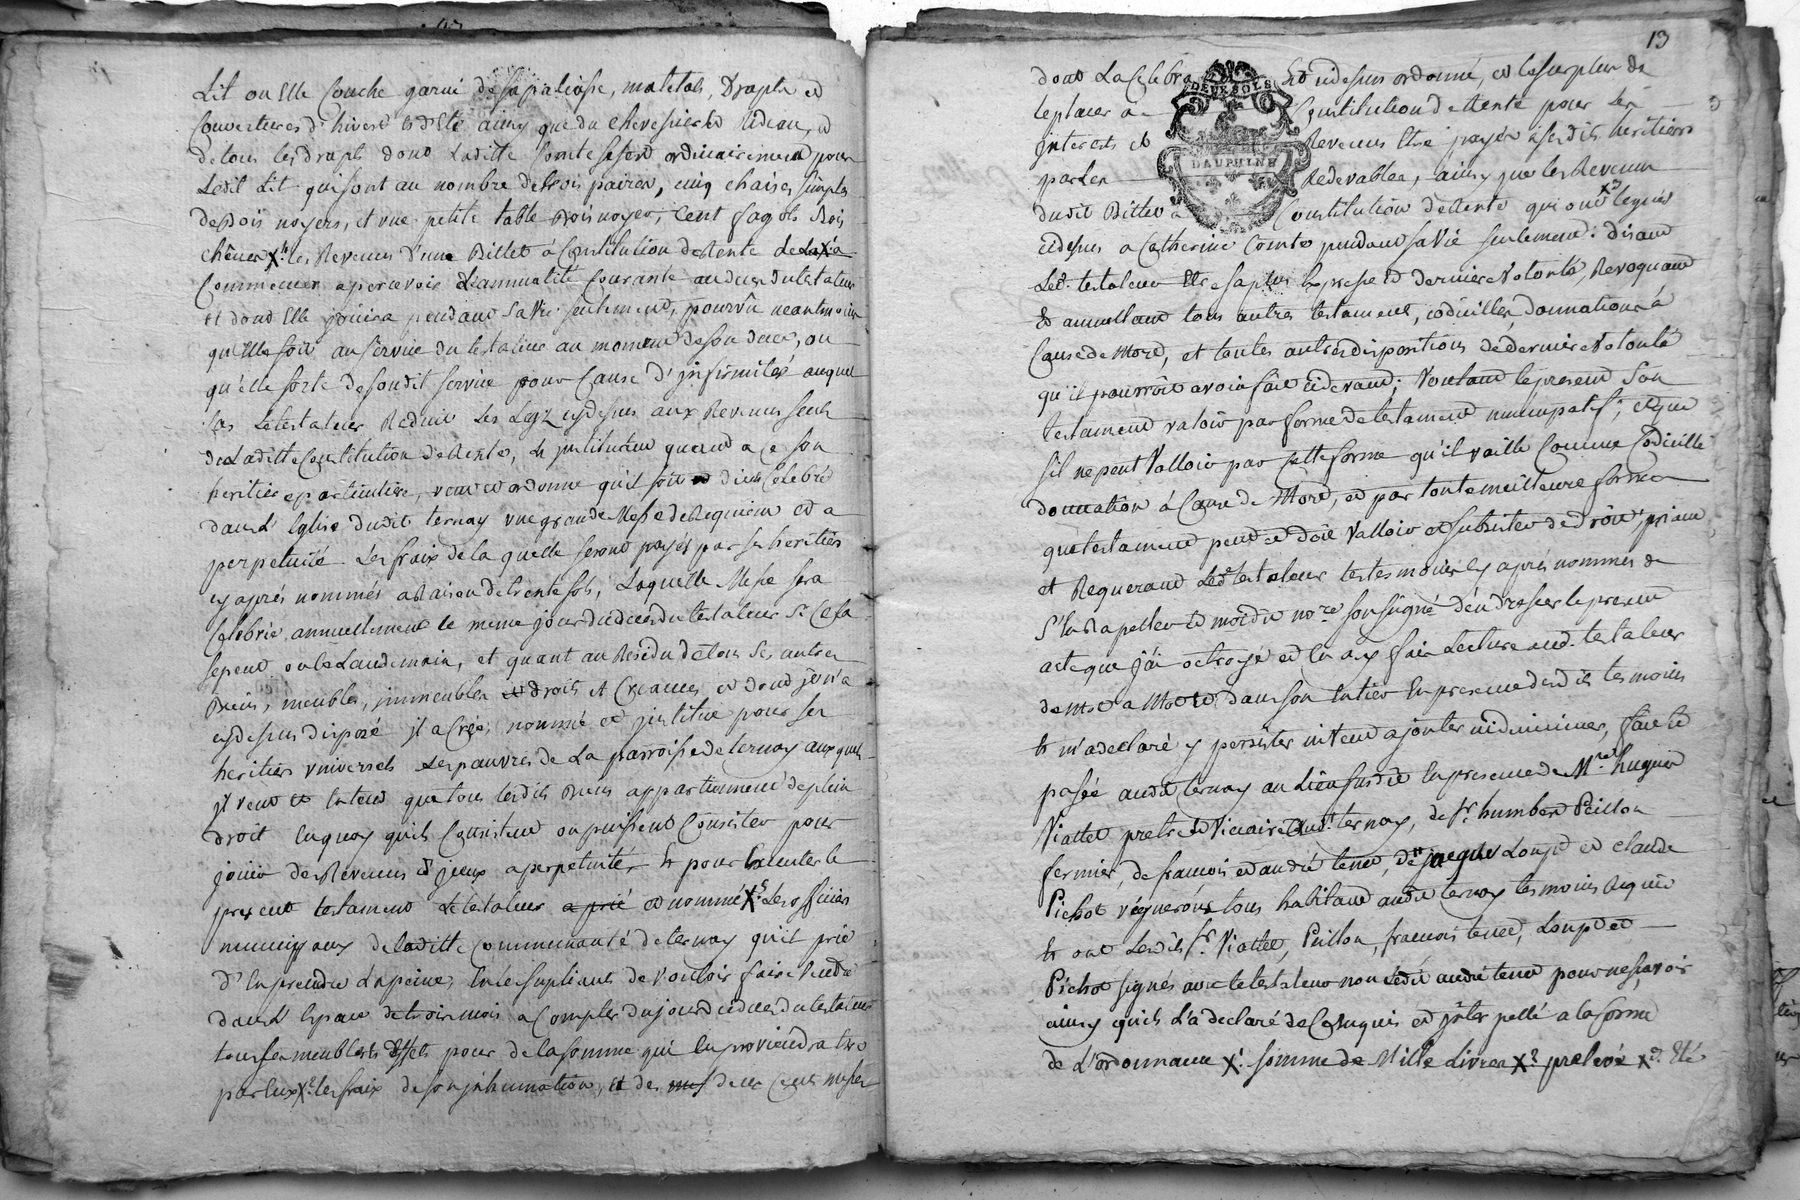 Lit ou Elle Couche garni de sa paliasse, matelas, Draps et
Couvertures d'hivert et d'Eté ainsy que du Chevessier et Rideau, et
de tous les draps dont Laditte Comte se sert ordinairement pour
Ledit Lit qui sont au nombre de trois paires, cinq chaises simples
de Bois noyers, et une petite table Bois noyer, Cent fagots Bois
chêner X les Revenus d'une Billet à Constitution de Rente
Commencer a percevoir L'annualité Courante au deces du testateur
et dont Elle jouira pendant sa Vie seulement, pourvû neantmoins
qu'Elle soit au service du testateur au moment de son deces, ou
qu'elle sorte de son dit service pour Cause d'infirmités auquel
Cas Le testateur Reduit Les Legs cydesus aux Revenus seuls
de Laditte Constitution de Rente, L'instituant quand a ce son
heritiere particuliere, veut et ordonne qu'il soit dit et Celebré
dans L'Eglise dudit ternay une grande Messe de Requiem et a
perpetuité Les fraix de la quelle seront payés par ses heritiers
cy aprés nommés a Raison de trente sols, Laquelle Messe sera
Celebrée annuellement le meme jour du deces du testateur Si Cela
se peut ou le Landemain, et quant au Residu de tous ses autres
Biens, meubles, immeubles droits et Creances et dont il n'a
cydesus disposé il a Créé, nommé et institué pour ses
heritiers universels Les pauvres de La parroisse de ternay auxquels
il veut et Entend que tous lesdits Biens appartiennent de plein
droit Enquoy quils Consistent ou puissent Consister pour
jouir des Revenus d'jceux a perpetuité, Et pour Executer le
present testament Le testateur a prié et nommé X Les officiers
municipaux de laditte Communauté de ternay qu'il prie
d'En prendre La peine, Les supliant de Vouloir faire Vendre
dans L'Espace de trois mois a Compter du jour du deces du testateur
tous ses meubles et Effets pour de la somme qui En proviendra tre
par Eux X les fraix de son jnhumation, et des deux Cents messes
13
dont La Celebra est cidesus ordonné, et le surplus de
le placer a Constitution de Rente pour les
interets et Revenus Etre payés esdits heritiers
par Les Redevables, ainsy que les Revenus
dudit Billet a Constitution de Rente qui ont legués
cidesus a Catherine Comte pendant sa Vie seulement; disant
Led. testateur Etre sa plus Expresse et derniere Volonté, Revoquant
Et annullant tous autres testament, codicilles, donnations à
Cause de Mort, et toutes autres dispositions de derniere Volonté
qu'il pourroit avoir fait cidevant; Voulant le present Son
testament valoir par forme de testament nuncupatif; et que
Sil ne peut Valloir par cette forme qu'il vaille Comme Codicille
donnation à Cause de Mort, et par toute meilleure forme
que testament peut et doit Valloir et subsister de droit, priant
et Requerant Led. testateur tes tesmoins cy aprés nommés de
S'En Rapeller et moi dit no.re soussigné d'en dresser le present
acte que j'ai octroyé et En ay fait Lecture aud. testateur
de Mot a Mot dans son Entier En presence desdits tesmoins
Et m'a declaré y persister ni Veut ajouter ni diminuer, fait et
passé audit ternay au Lieu susdit En presence de M.re hugues
Viallet pretre et Vicaire Aud. ternay, de Sr. humbert Peillon
fermier, de francois et andré tenet, de jacque Loupt et claude
Pichot vignerons tous habitans audit ternay tesmoins Requis
Et ont Lesdits Sr. Viallet, Peillon, francois tenet, Loupt et
Pichot signés avec le testateur non ledit andré tenet pour ne sçavoir
ainsy quils L'a declaré de Ce Enquis et jnterpellé a la forme
de L'ordonnance X somme de Mille Livres X prelevé X Eté
DEUX SOLS
DAUPHINE